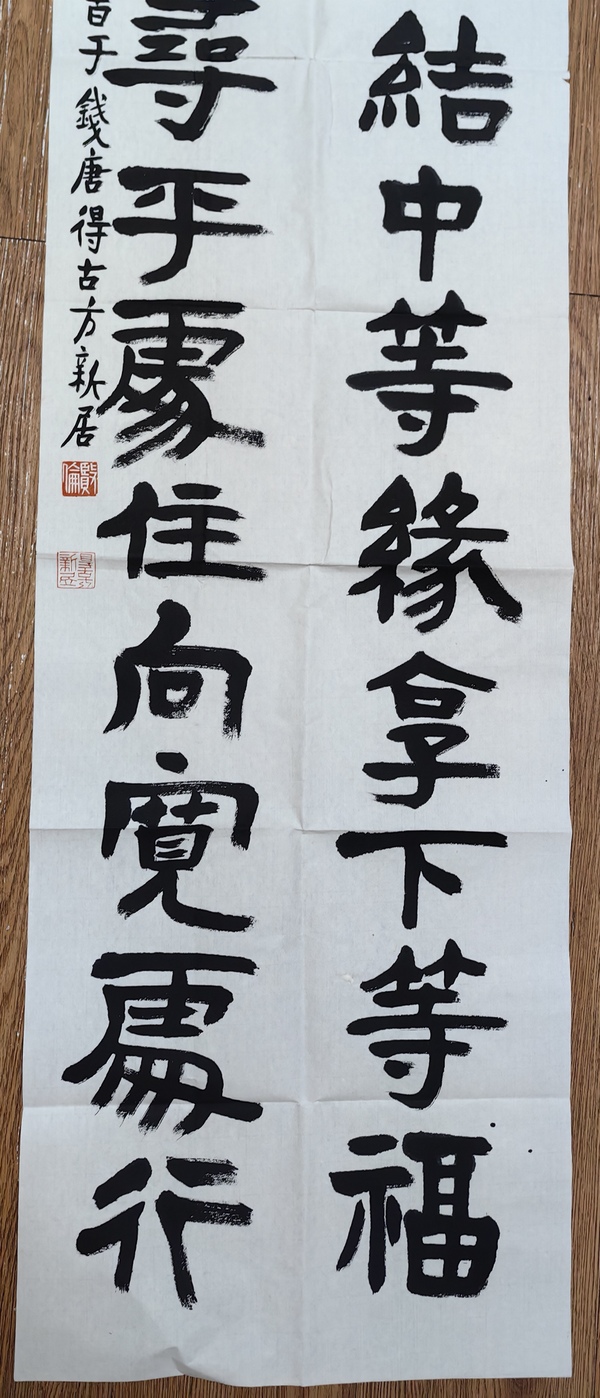 結中等緣享下等福
尋平處住向寬處行
于錢唐得古方新居